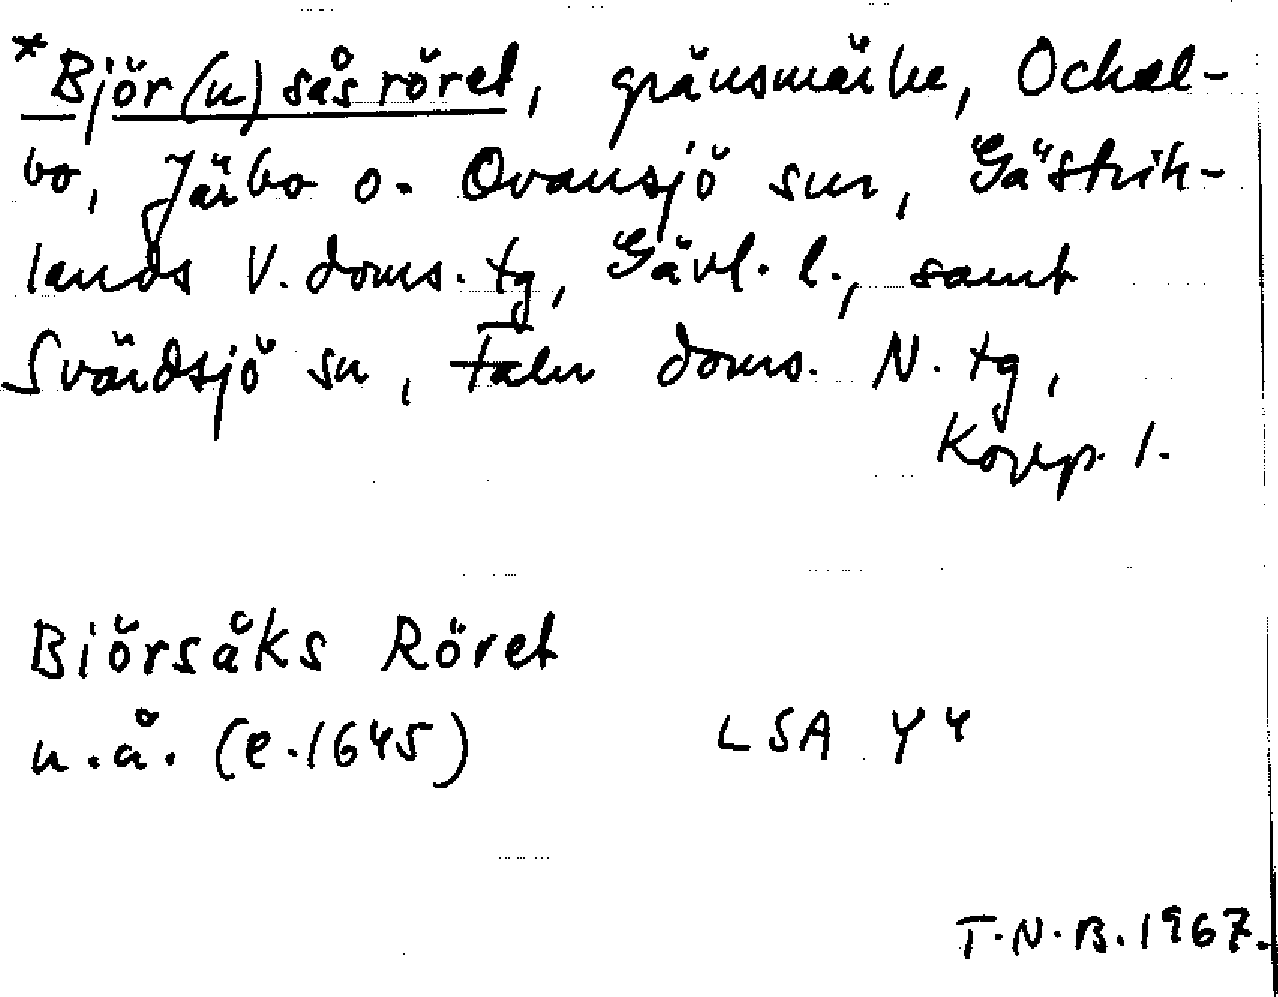 *Björ(n)såsröret, gränsmärke, Ockel-
bo, Järbo o. Ovansjö snr, Gästrik-
lands V. doms. tg, Gävl. l., samt
Svärdsjö sn, Falu doms. N. tg,
Kopp. l.
Biörsåks Röret
u.å. (e. 1645) LSA Y 4
T.N.B. 1967.